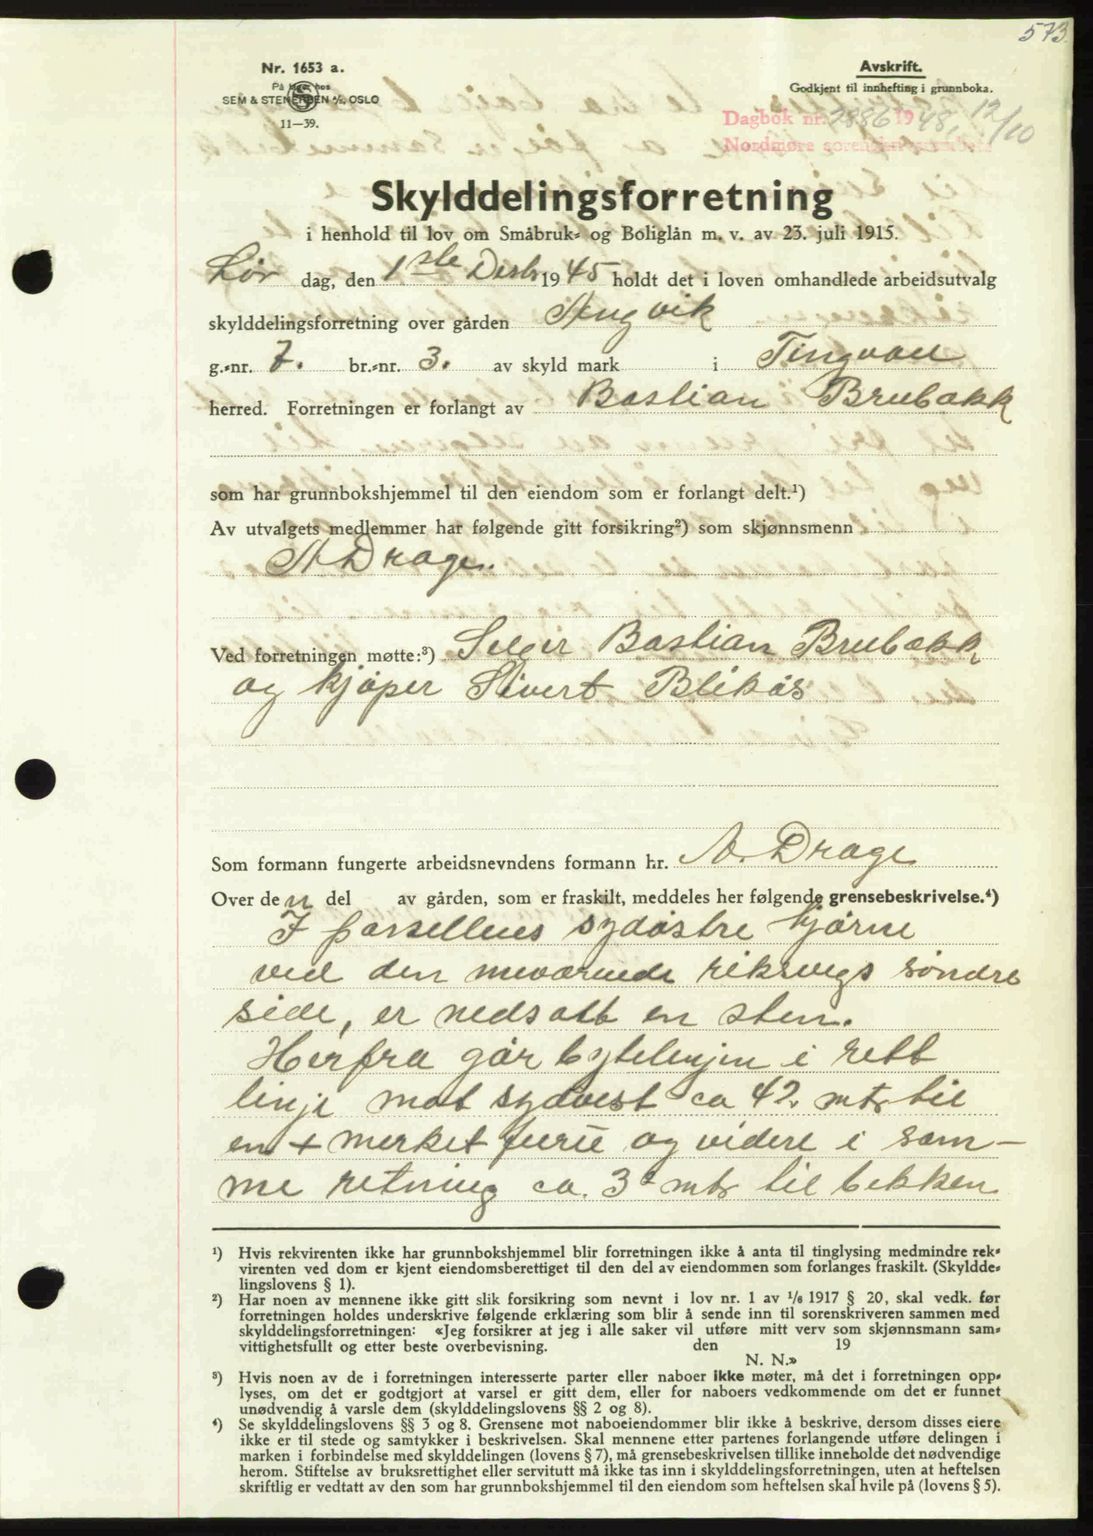 573
Nr. 1653 a.
På lager hos
SEM & STENERSEN A/S, OSLO
11—39.
Avskrift.
Godkjent til innhefting i grunnboka.
Dagbok nr. 2886 1948, 12/10
Nordmøre sorenskriverembete
Skylddelingsforretning
i henhold til lov om Småbruk- og Boliglån m. v. av 23. juli 1915.
Lør dag, den 1ste Desbr 1945 holdt det i loven omhandlede arbeidsutvalg
skylddelingsforretning over gården Angvik
g.-nr. 7. br.-nr. 3. av skyld mark i Tingvoll
herred. Forretningen er forlangt av Bastian Brubakk
som har grunnbokshjemmel til den eiendom som er forlangt delt.¹)
Av utvalgets medlemmer har følgende gitt forsikring²) som skjønnsmenn
A Drage.
Ved forretningen møtte:³) Selger Bastian Brubakk
og kjøper Sivert Blikås
Som formann fungerte arbeidsnevndens formann hr. A. Drage
Over den del av gården, som er fraskilt, meddeles her følgende grensebeskrivelse.⁴)
I parsellens sydøstre hjørne
ved den nuværende riksvegs søndre
side, er nedsatt en sten.
Herfra går bytelinjen i rett
linje mot sydvest ca 42. mtr til
en + merket furu og videre i sam-
me retning ca. 3 mtr til bekken
¹) Hvis rekvirenten ikke har grunnbokshjemmel blir forretningen ikke å anta til tinglysing medmindre rek-
virenten ved dom er kjent eiendomsberettiget til den del av eiendommen som forlanges fraskilt. (Skyldde-
lingslovens § 1).
²) Har noen av mennene ikke gitt slik forsikring som nevnt i lov nr. 1 av 1/6 1917 § 20, skal vedk. før
forretningen holdes underskrive følgende erklæring som blir å sende inn til sorenskriveren sammen med
skylddelingsforretningen: «Jeg forsikrer at jeg i alle saker vil utføre mitt verv som skjønnsmann sam-
vittighetsfullt og etter beste overbevisning. den 19
N. N.»
³) Hvis noen av de i forretningen interesserte parter eller naboer ikke møter, må det i forretningen opp-
lyses, om det er godtgjort at varsel er gitt dem, eller for naboers vedkommende om det er funnet
unødvendig å varsle dem (skylddelingslovens §§ 2 og 8).
⁴) Se skylddelingslovens §§ 3 og 8. Grensene mot naboeiendommer blir ikke å beskrive, dersom disses eiere
ikke er til stede og samtykker i beskrivelsen. Skal mennene etter partenes forlangende utføre delingen i
marken i forbindelse med skylddelingen (lovens § 7), må grensebeskrivelsen tillike inneholde det nødvendige
herom. Stiftelse av bruksrettighet eller servitutt må ikke tas inn i skylddelingsforretningen, uten at heftelsen
skriftlig er vedtatt av den som har grunnbokshjemmel til den eiendom som heftelsen skal hvile på (lovens § 5).